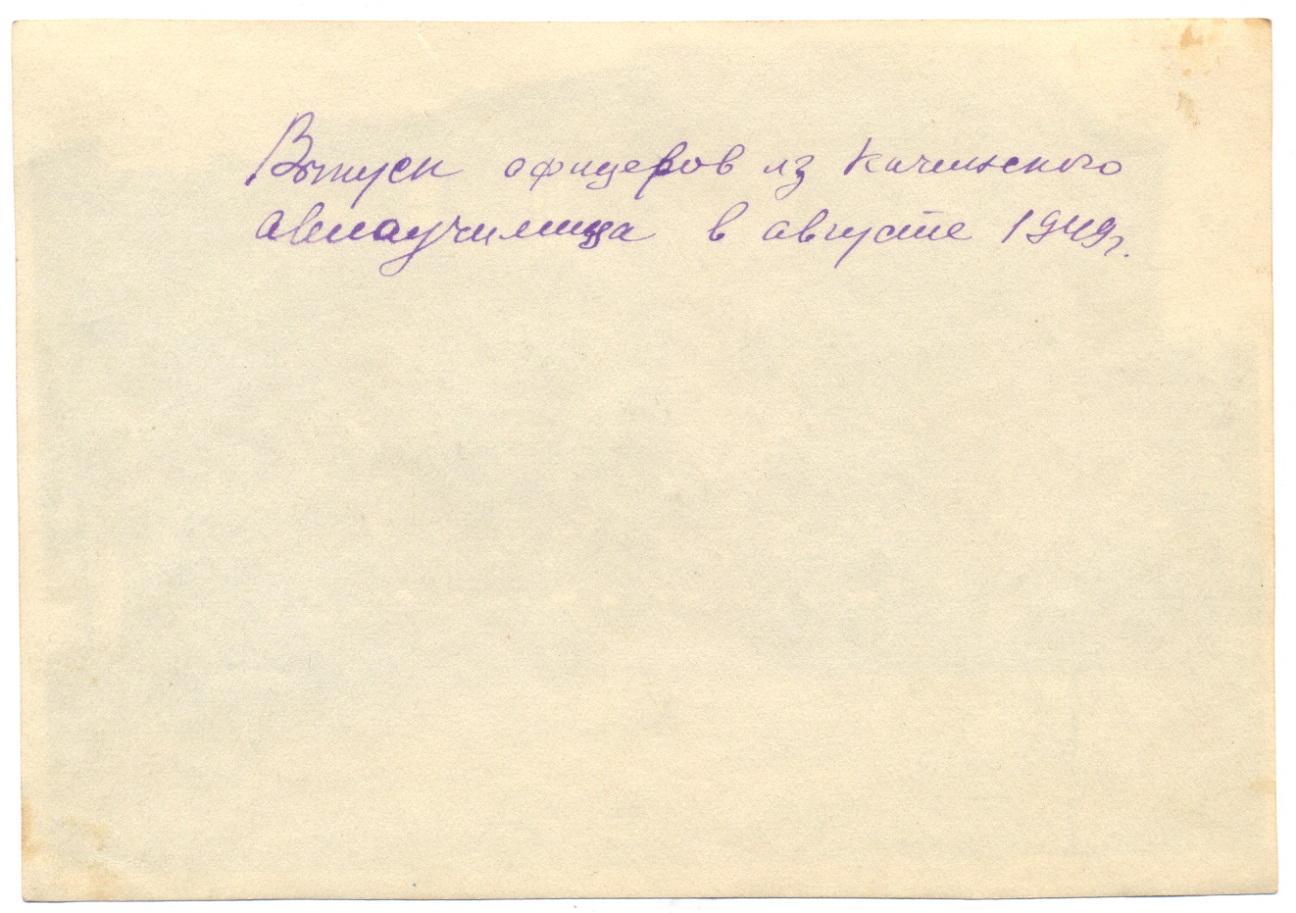 Выпуск офицеров из Качинского
авиаучилища в августе 1949г.